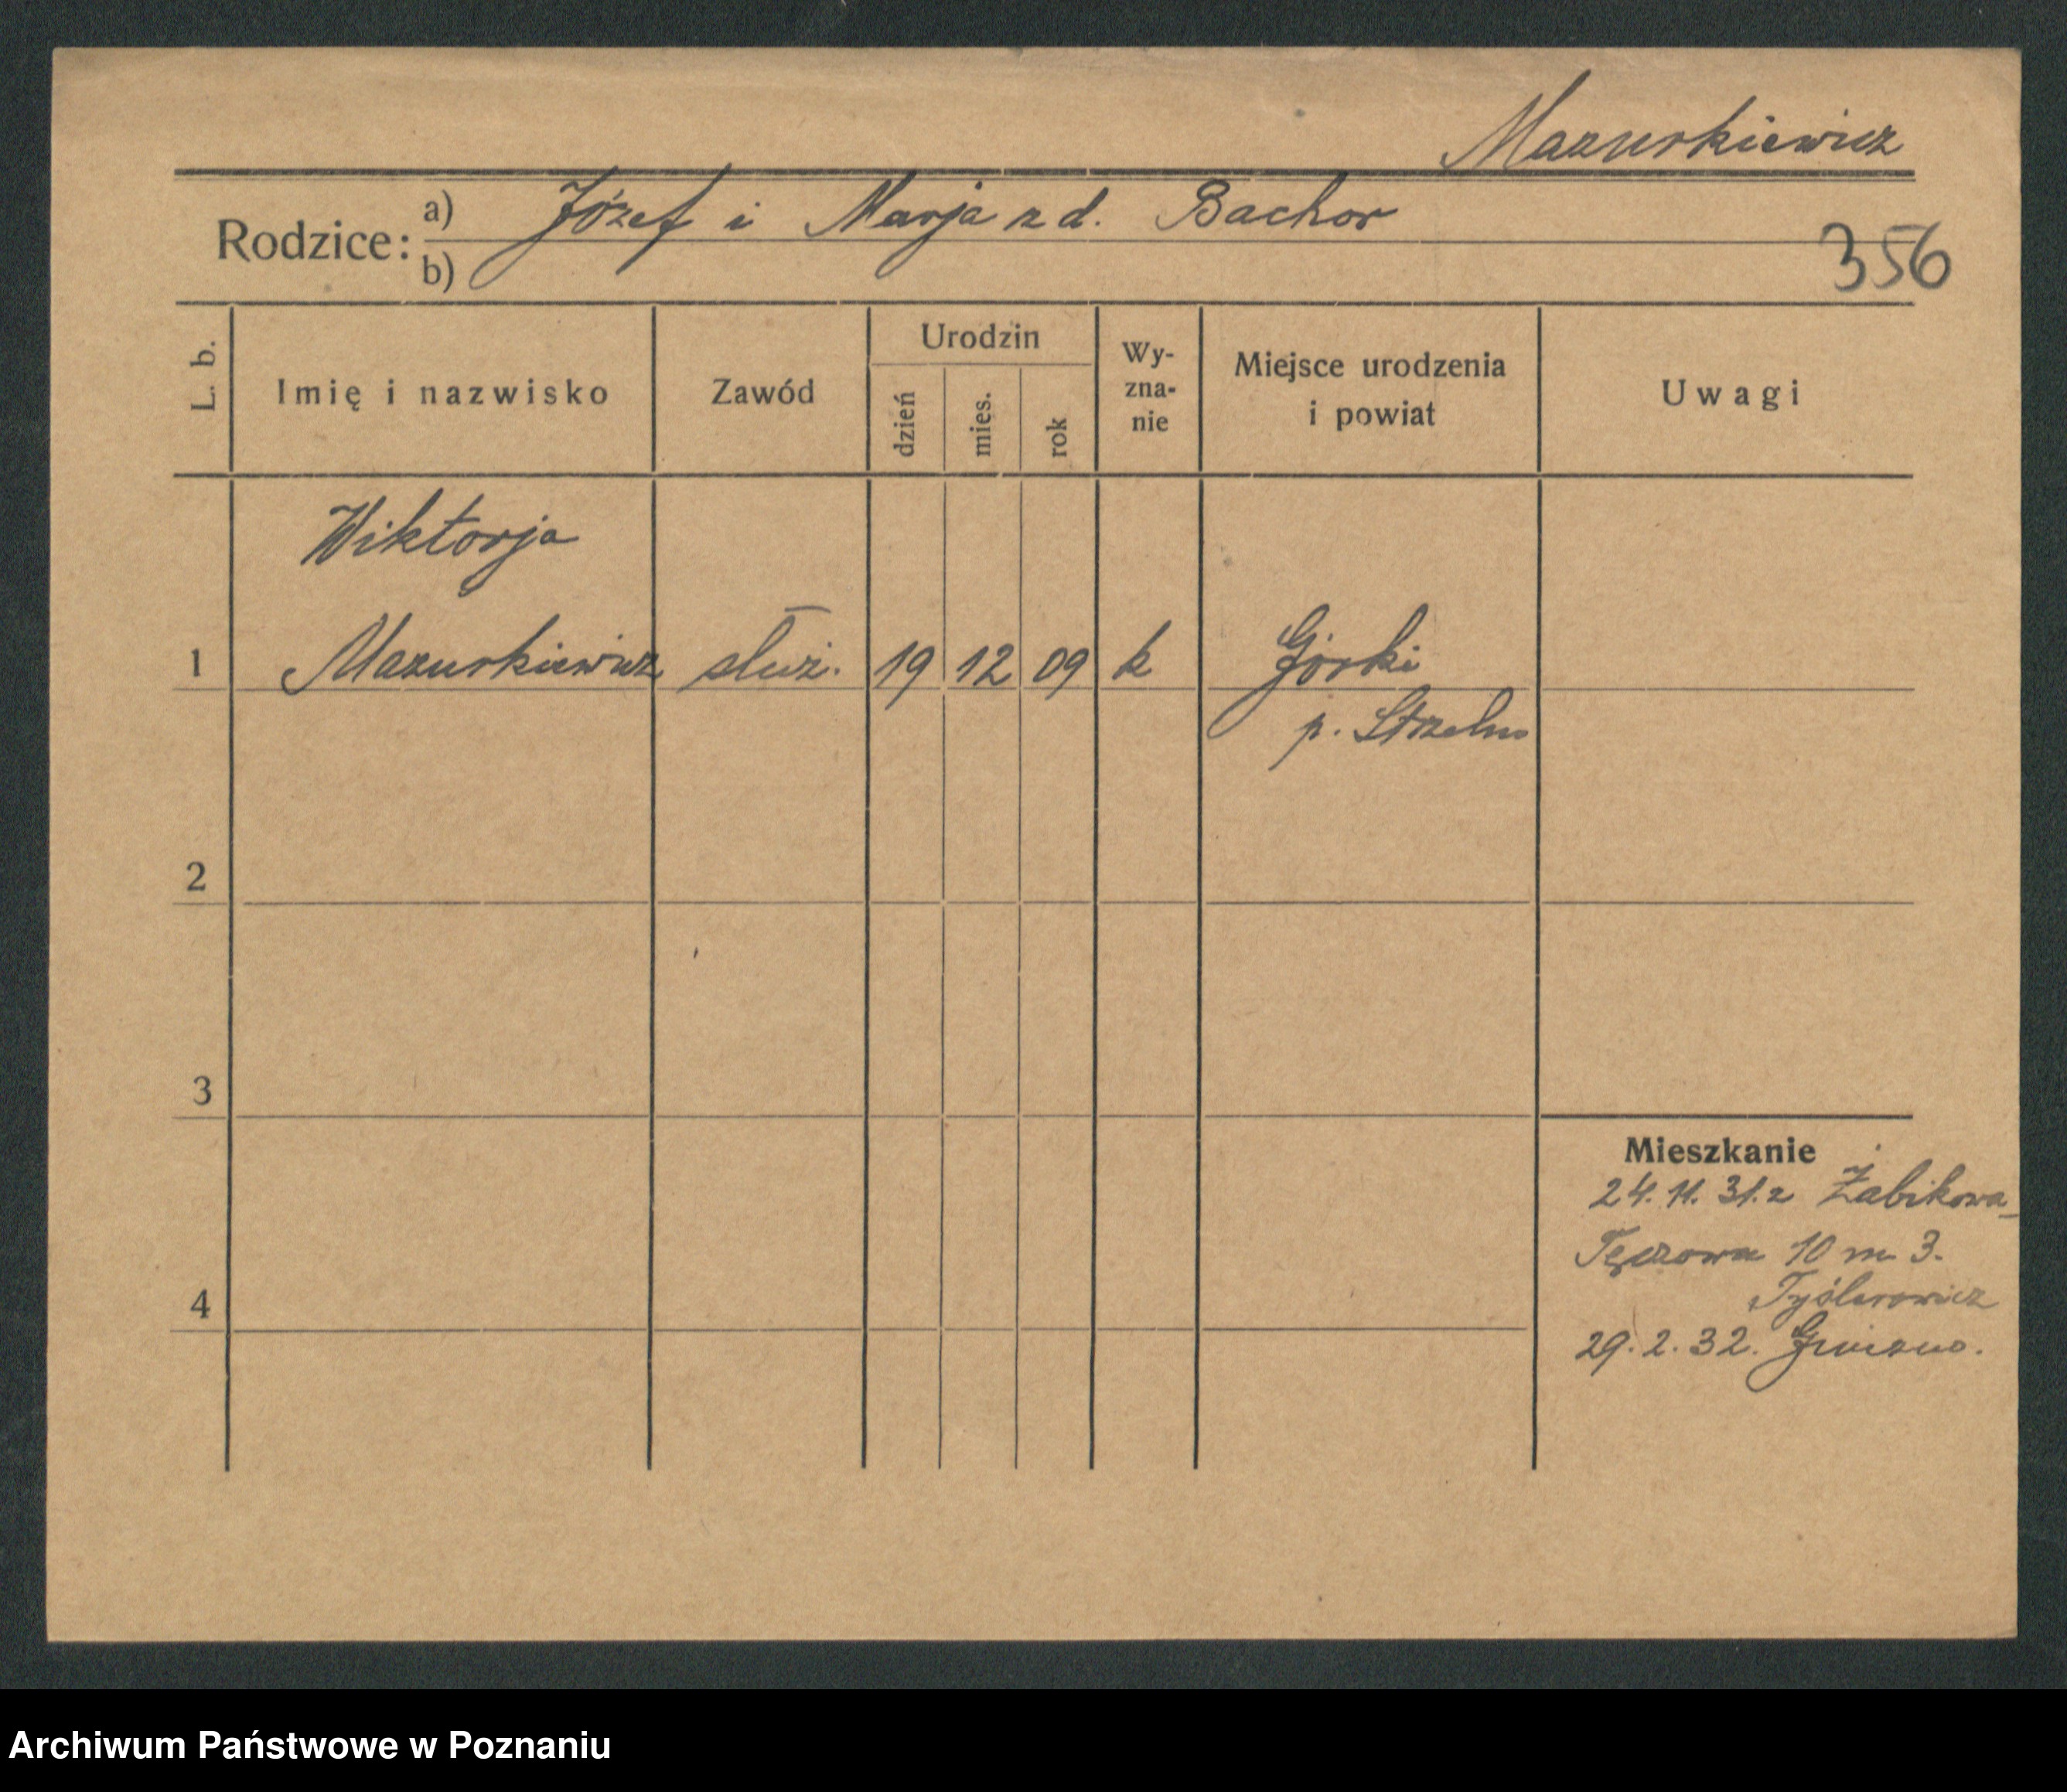 Mazurkiewicz
Rodzice: a) Józef i Marja z d. Bachor
b)
356
L. b.
Imię i nazwisko
Zawód
Urodzin
dzień
mies.
rok
Wy-
zna-
nie
Miejsce urodzenia
i powiat
Uwagi
Wiktorja
1 Mazurkiewicz służ. 19 12 09 k Górki
p. Strzelno
2
3
4
Mieszkanie
24. 11. 31. z Żabikowa
Tęczowa 10 m 3.
Tyślerowicz
29. 2. 32. Gniezno.
Archiwum Państwowe w Poznaniu